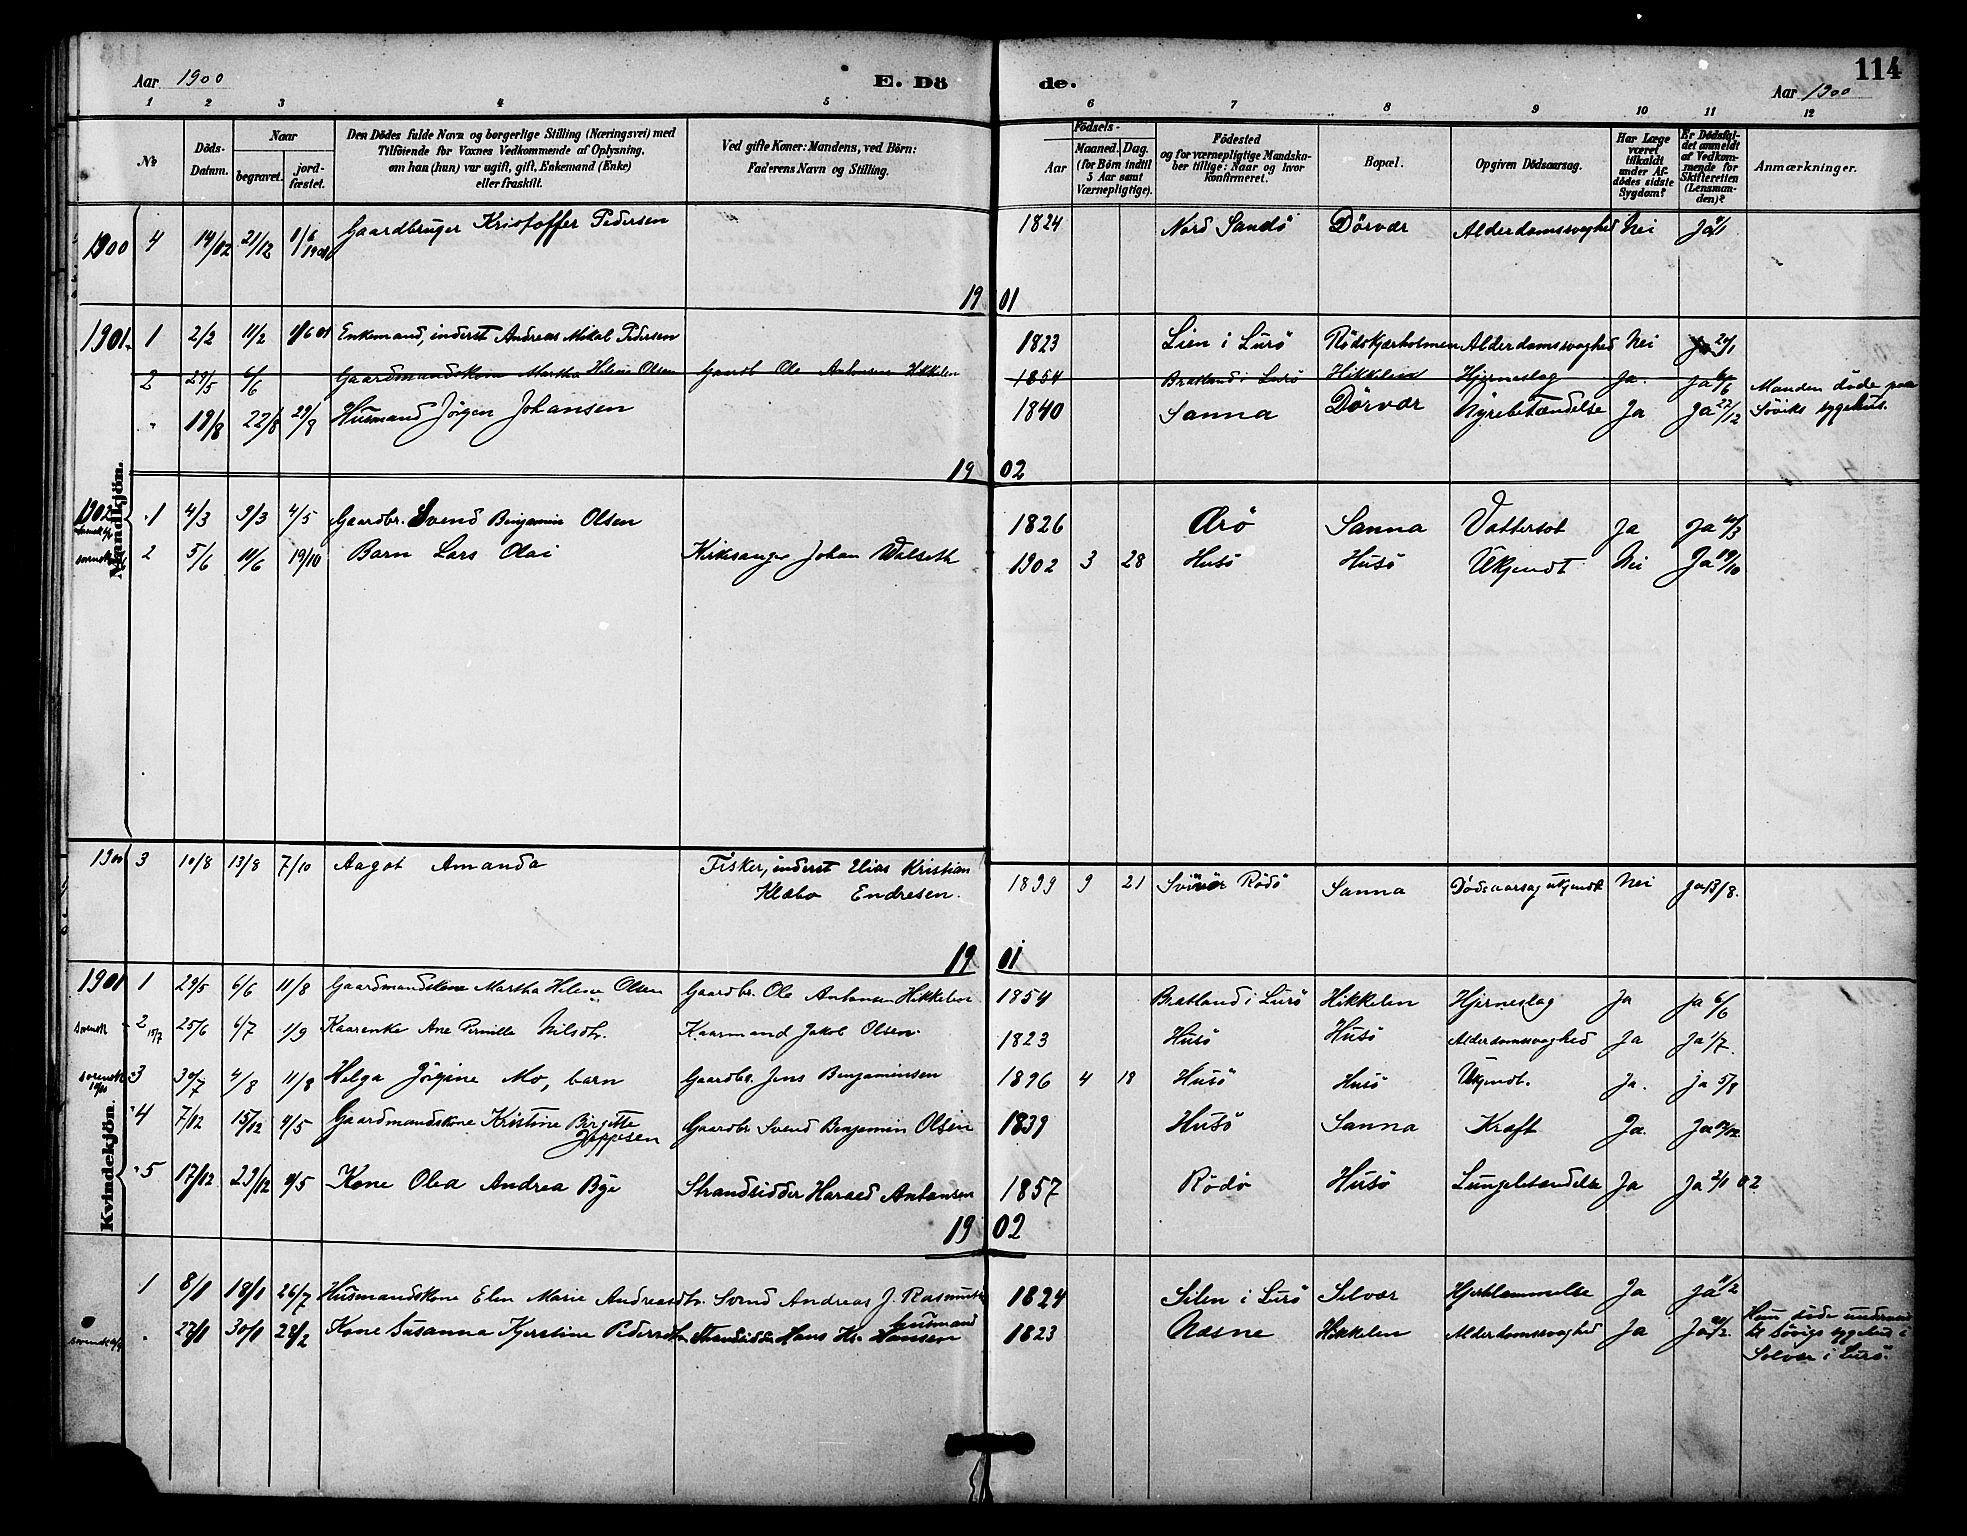 Aar 1900 E. Dö de. Aar 1900 114
1 2 3 4 5 6 7 8 9 10 11 12
No
Döds-Datum.
Naar
begravet.
jord-fæstet.
Den Dödes fulde Navn og borgerlige Stilling (Næringsvei) med
Tilföiende for Voxnes Vedkommende af Oplysning,
om han (hun) var ugift, gift, Enkemand (Enke)
eller fraskilt.
Ved gifte Koner: Mandens, ved Börn:
Faderens Navn og Stilling.
Födsels-
Aar
Maaned. Dag.
(for Börn indtil
5 Aar samt
Værnepligtige).
Födested
og for værnepligtige Mandska-
ber tillige: Naar og hvor
konfirmeret.
Bopæl.
Opgiven Dödsaarsag.
Har Læge
været
tilkaldt
under Af-
dödes sidste
Sygdom?
Er Dödsfal-
det anmeldt
af Vedkom-
mende for
Skifteretten
(Lensman-
den)?
Anmærkninger.
1900 4 14/12 21/12 1/6 1901 Gaardbruger Kristoffer Pedersen 1824 Nord Sandö Dörvær Alderdomssvaghed Nei Ja
19 01
1901 1 2/2 11/2 1/6 01 Enkemand, inderst Andreas Mikal Pedersen 1823 Lien i Lurö Rödskjærholmen Alderdomssvaghed Nei
2 29/5 6/6 Gaardmandskone Martha Helene Olsen Gaardb Ole Antonsen Hikkelen 1854 Bratland i Lurö Hikkelen Hjerneslag Ja. Ja 6/6
" 19/8 22/8 29/8 Husmand Jörgen Johansen 1840 Sanna Dörvær Nyrebetændelse Ja Ja 22/12 Manden döde paa
Söviks sygehus.
19 02
Mandkjön.
1902 1 4/3 9/3 4/5 Gaardbr. Svend Benjamin Olsen 1826 Ærö Sanna Vattersot Ja Ja
2 5/6 10/6 19/10 Barn Lars Olai Kirksanger Johan Walseth 1902 3 28 Husö Husö Ukjendt Nei Ja 19/10
1900 3 10/8 13/8 7/10 Aagot Amanda Fisker, inderst Elias Kristian
Klæbo Endresen. 1899 9 21 Svinvær Rödö Sanna Dödsaarsag ukjendt Nei Ja 13/8.
19 01
1901 1 29/5 6/6 11/8 Gaardmandskone Martha Helene Olsen Gaardbr. Ole Antonsen Hikkelen 1854 Bratland i Lurö Hikkelen Hjerneslag Ja Ja 6/6
2 25/6 6/7 1/9 Kaarenke Ane Pernille Nilsdtr. Kaarmand Jakob Olsen. 1823 Husö Husö Alderdomssvaghed Ja Ja 1/7.
3 30/7 4/8 11/8 Helga Jörgine Mo, barn Gaardbr. Jens Benjaminsen 1896 4 18 Husö Husö Ukjendt. Ja. ja 5/8
Kvindekjön.
4 7/12 15/12 4/5 Gaardmandskone Kristine Birgitte
Jeppesen Gaardbr Svend Benjamin Olsen 1839 Husö Sanna Kræft Ja. Ja
5 17/12 29/12 4/5 Kone Olea Andrea Bye Strandsidder Harald Antonsen 1857 Rödö Husö Lungebetændelse Ja Ja 2/1 02
19 02
1 8/1 18/1 26/7 Husmandskone Elen Marie Andreasdtr. Svend Andreas J. Rasmussen 1824 Silen i Lurö Selvær Hjertelammelse Ja Ja
" 27/1 30/1 Kone Susanna Kjerstine Pedersdtr. Strandsidder Hans Hansen
Husmand 1823 Næsne Hikkelen Alderdomssvaghed Ja Ja Hun döde underveis
til Sövigs sygehus i
Solvær i Lurö.